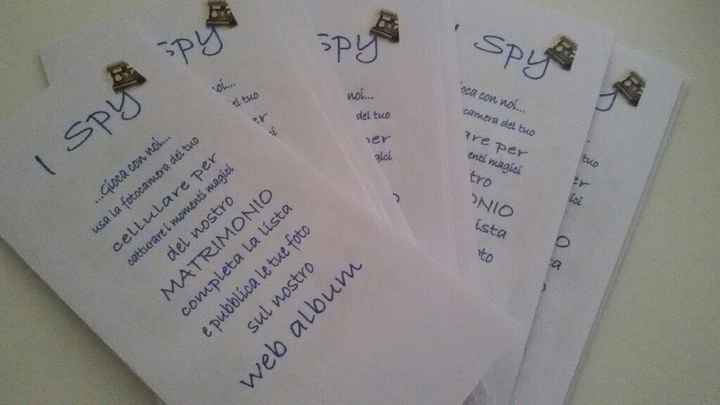 I SPY
...Gioca con noi...
usa la fotocamera del tuo
cellulare per
catturare i momenti magici
del nostro
MATRIMONIO
completa la lista
e pubblica le tue foto
sul nostro
web album
SPY
oi...
el tuo
er
SPY
noi...
del tuo
er
gici
I SPY
oca con noi...
camera del tuo
are per
enti magici
tro
ONIO
ista
to
Y
tuo
er
ici
O
a